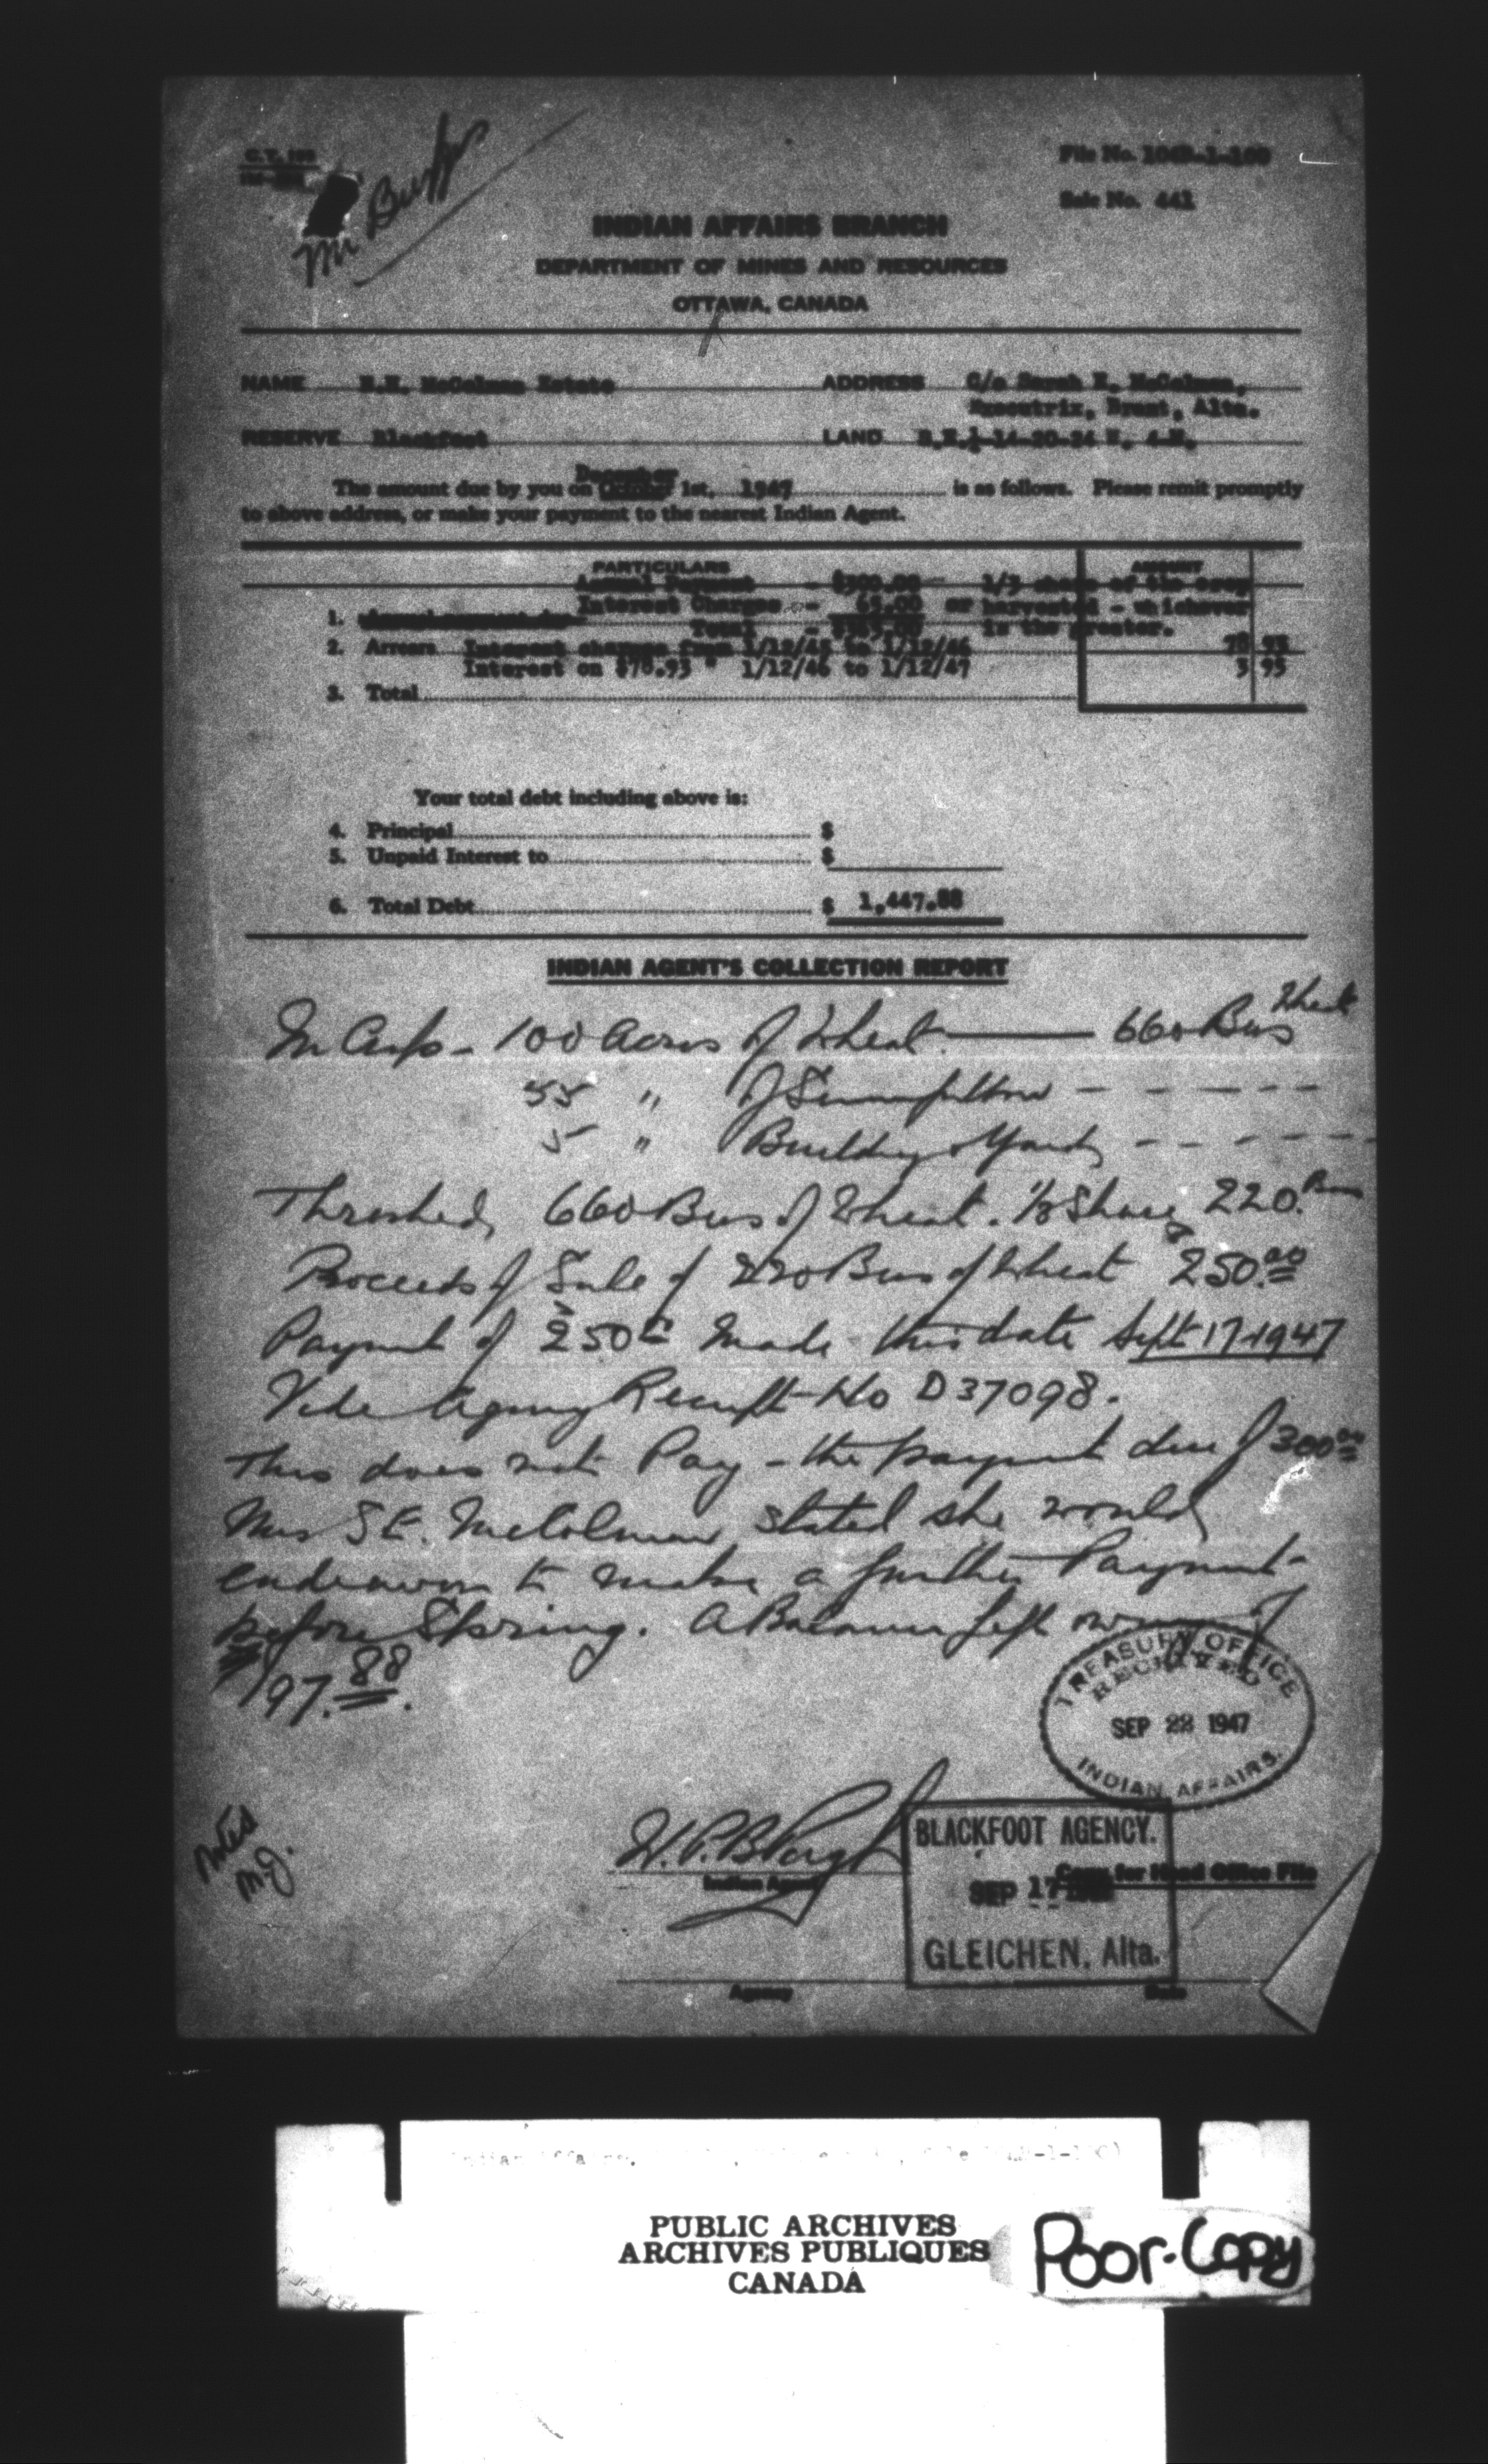 C.T. 198
Mr
File No. 1048-1-100
Sale No. 441
INDIAN AFFAIRS BRANCH
DEPARTMENT OF MINES AND RESOURCES
OTTAWA, CANADA
NAME McColman Estate ADDRESS C/o Sarah E. McColman,
Executrix, Brant, Alta.
RESERVE Blackfoot LAND 14-20-24 W. 4.M.
December
The amount due by you on October 1st, 1947 is as follows. Please remit promptly
to above address, or make your payment to the nearest Indian Agent.
PARTICULARS AMOUNT
Annual Payment - $300.00 1/3 share of the crop
1. Interest Charges - 65.00 or harvested - whichever
Total is the greater.
2. Arrears Interest charges from 1/12/45 to 1/12/46 78 93
Interest on $78.93 " 1/12/46 to 1/12/47 3 95
3. Total
Your total debt including above is:
4. Principal $
5. Unpaid Interest to $
6. Total Debt $ 1,447.88
INDIAN AGENT'S COLLECTION REPORT
In Crop - 100 Acres of Wheat. — 660 Bus Wheat
55 " of Summerfallow - - - - - -
5 " Building & Yards - - - - - -
Threshed, 660 Bus of Wheat. 1/3 Share 220. Bus
Proceeds of Sale of 220 Bus of Wheat $250.00
Payment of $250.00 Made this date Sept 17 1947
Vide Agency Receipt No D 37098.
This does not Pay - the payment due of 300.00
Mrs S E. McColman stated she would
endeavour to make a further Payment
before Spring. A Balance left owing of
$197.88.
TREASURY OFFICE
RECEIVED
SEP 22 1947
INDIAN AFFAIRS.
Noted
M.J.
Indian Agent
BLACKFOOT AGENCY.
Copy for Head Office File
SEP 17
GLEICHEN, Alta.
Agency Date
PUBLIC ARCHIVES
ARCHIVES PUBLIQUES
CANADA
Poor-Copy